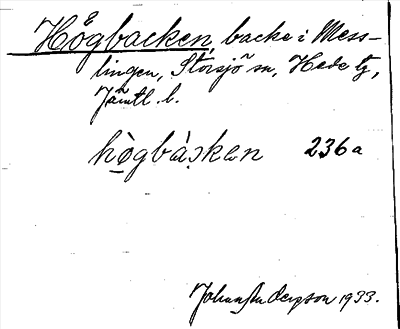 Högbacken, backe i Mess-
lingen, Storsjö sn, Hede tg,
Jämtl. l.
hògbàcken 236a
Johan Anderson 1933.